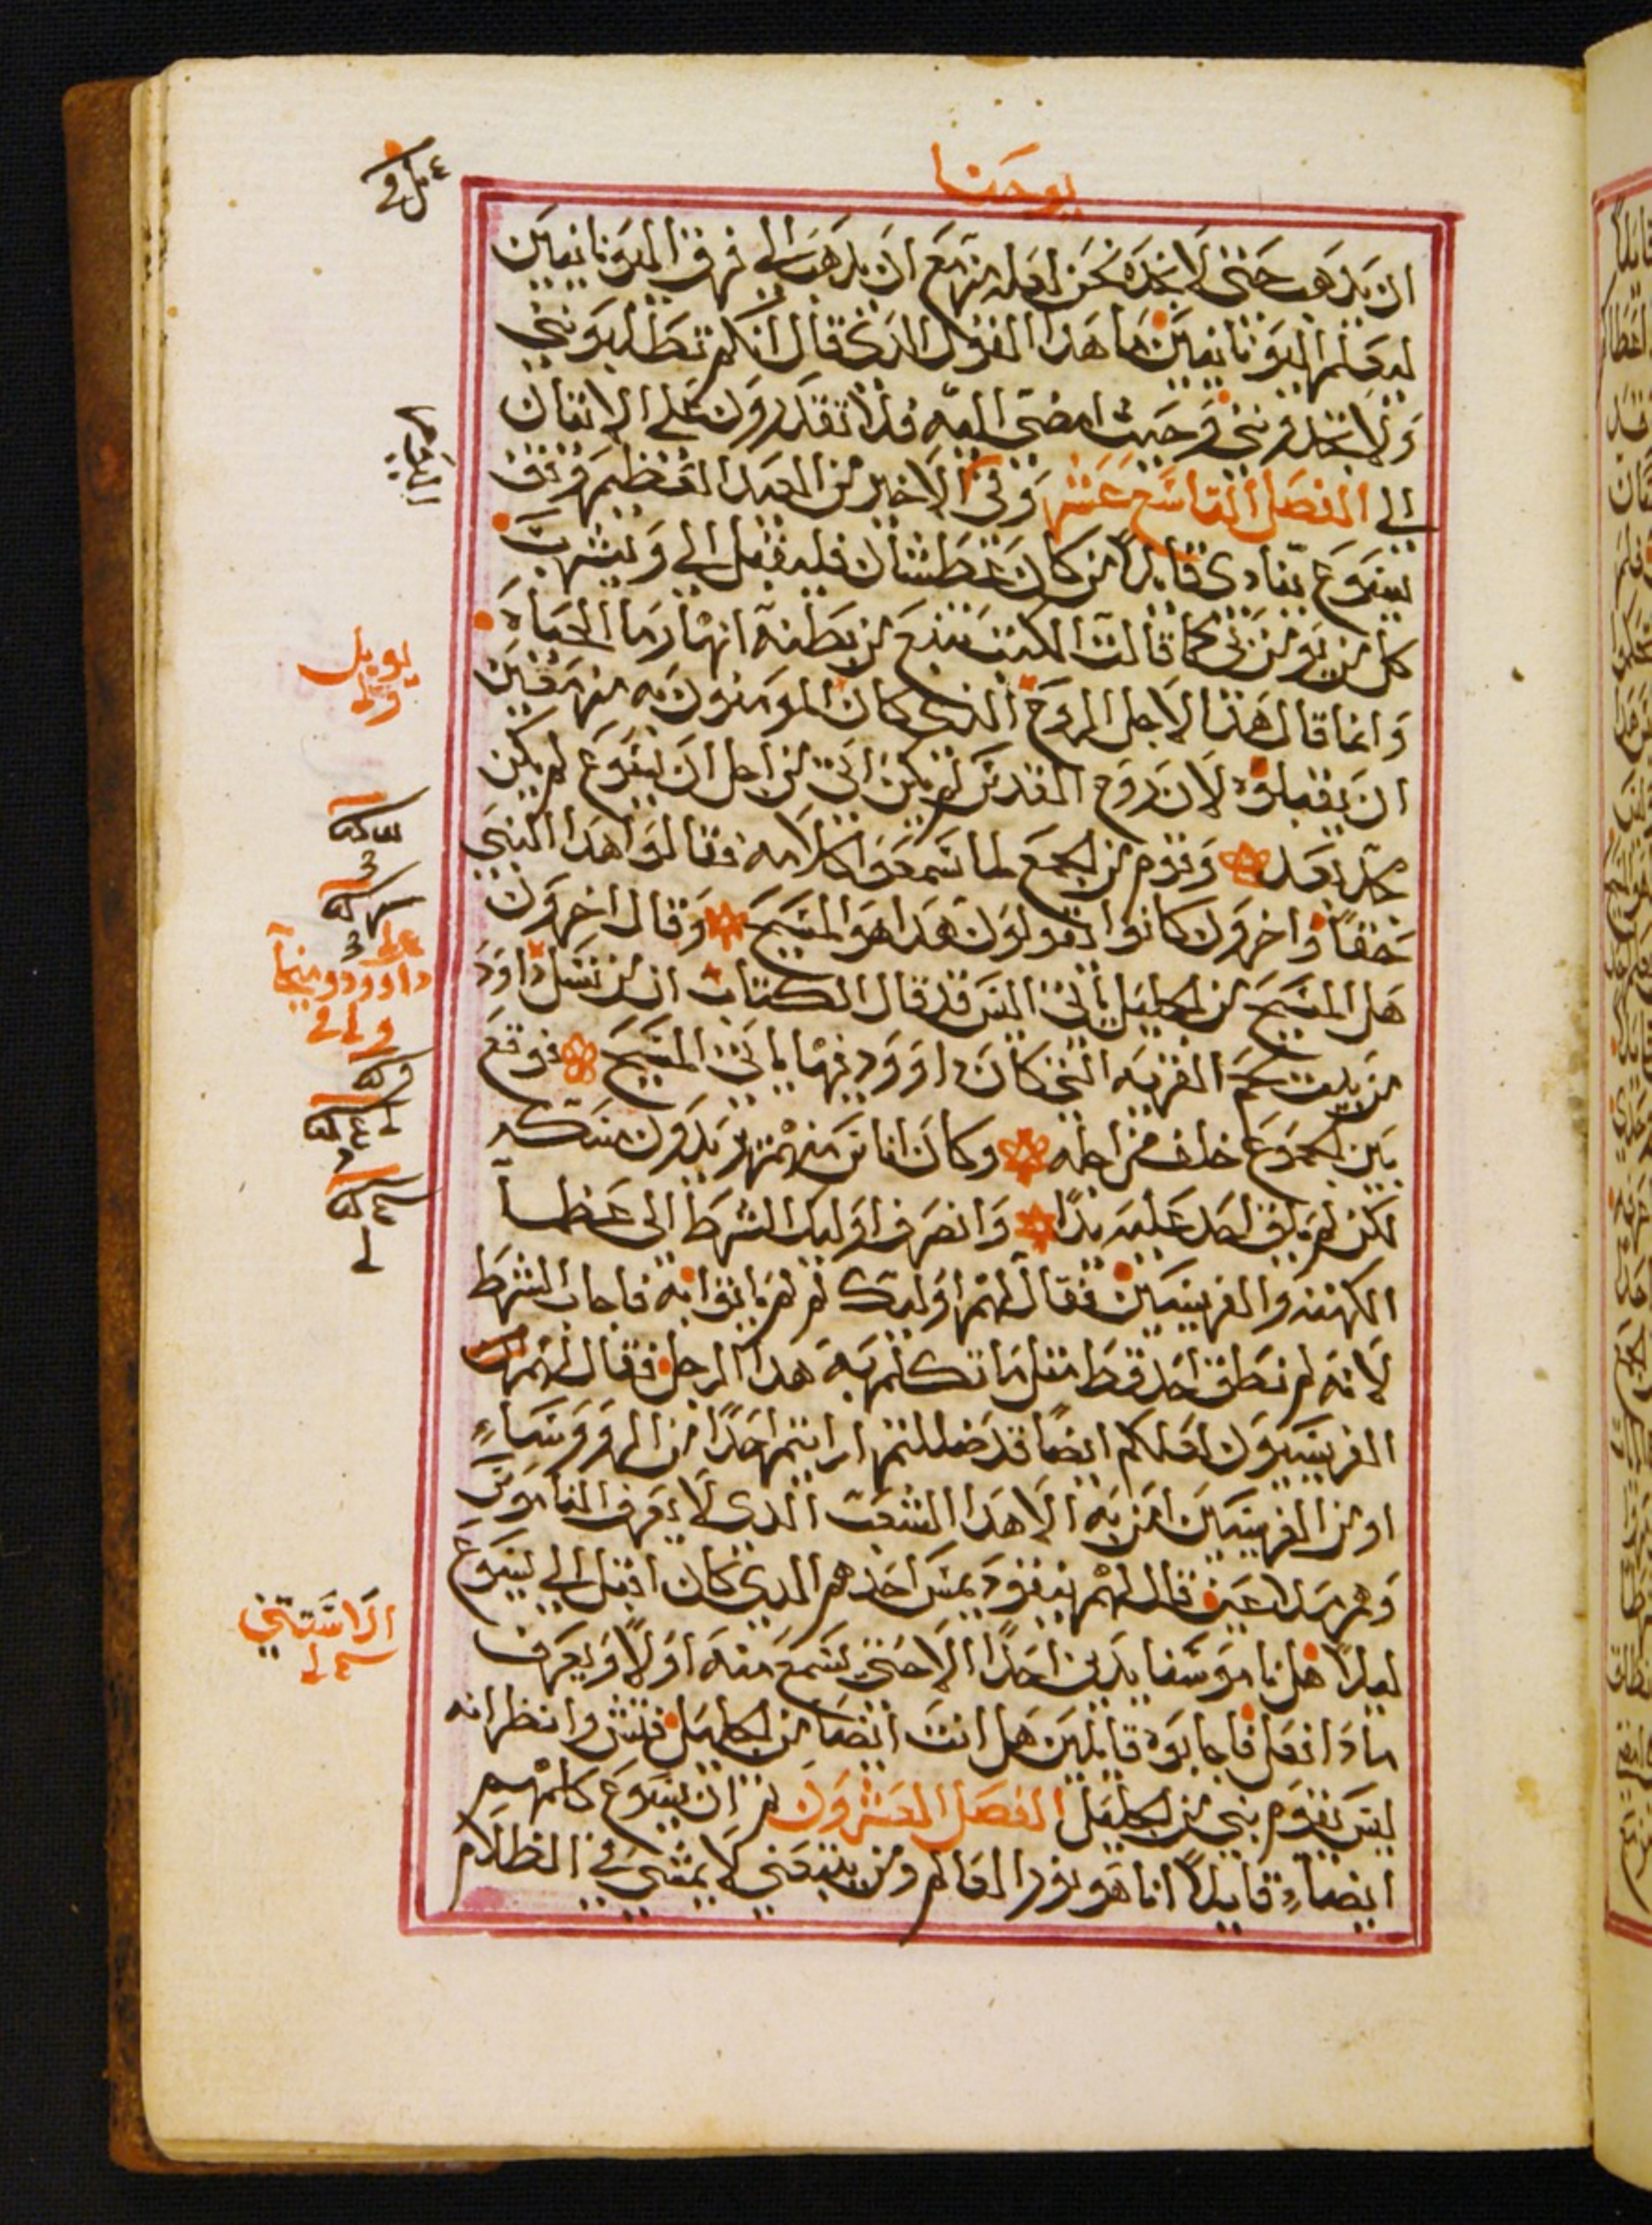 يوحنا
ان يدهب حتى لا نجده نحن لعله مزمع ان يدهب الي فرق اليونانيين
ليعلم اليونانيين ما هدا القول الدى قال انكم تطلبونني
ولا تجدونني وحيث امضى اليه فلا تقدرون على الاتيان
الي الفصل التاسع عشر وفى الاخير من العيد العظيم وقف
يسوع ينادى قايلاً من كان عطشان فليقبل الي ويشرب
كل من يومن بي كما قالت الكتب تنبع من بطنه انهار ما الحياه
وانما قال هدا لاجل الروح الدى كان المومنون به مزمعين
ان يقبلوه لان روح القدس لم يكن اتى من اجل ان يسوع لم يكن
مجد بعد وقوم من الجمع لما سمعوا كلامه فقالوا هدا النبي
حقاً واخرون كانوا يقولون هدا هو المسيح وقال اخرون
هل المسيح من الجليل ياتى اليس قد قال الكتاب ان من نسل داوود
من بيت لحم القريه التى كان داوود فيها ياتى المسيح فوقع
بين الجموع خلف من اجله وكان اناس منهم يريدون مسكه
لكن لم يلق احد عليه يدًا وانصرف اوليك الشرط الى عظما
الكهنه والفريسيين فقال لهم اوليك لم لم ياتوا به فاجاب الشرط
لانه لم نطق احد قط مثل ما تكلم به هدا الرجل فقال لهم
الفريسيون لعلكم ايضًا قد ضللتم ارايتم احدًا من الروساء
او من الفريسيين امن به الا هدا الشعب الدى لا يعرف الناموس
وهم ملاعين قال لهم نيقوديمس احدهم الدى كان اقبل الي يسوع
ليلاً هل ناموسنا يدين احدًا الا حتى يسمع منه اولاً ويعرف
مادا فعل فاجابوه قايلين هل انت ايضا من الجليل فتش وانظر انه
ليس يقوم نبي من الجليل الفصل العشرون ثم ان يسوع كلمهم
ايضاء قايلاً انا هو نور العالم ومن يتبعني لا يمشي في الظلام
يوييل